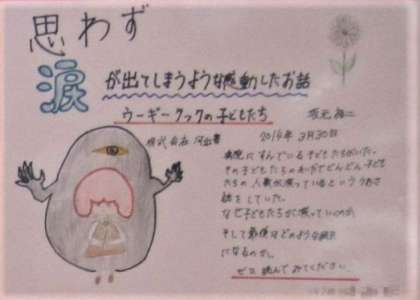 思わず
涙が出てしまうような感動したお話
ウーギークックの子どもたち
坂元裕二
株式会社 河出書
2014年3月30日
病院にすんでいる子どもたちがいた。
その子どもたちのあいだでどんどん子ど
もたちの人数が減っているといううわさ
話をしていた。
なぜ子どもたちが減っていくのか、
そして最後はどのような
になるのか。
ぜひ読んでみてください